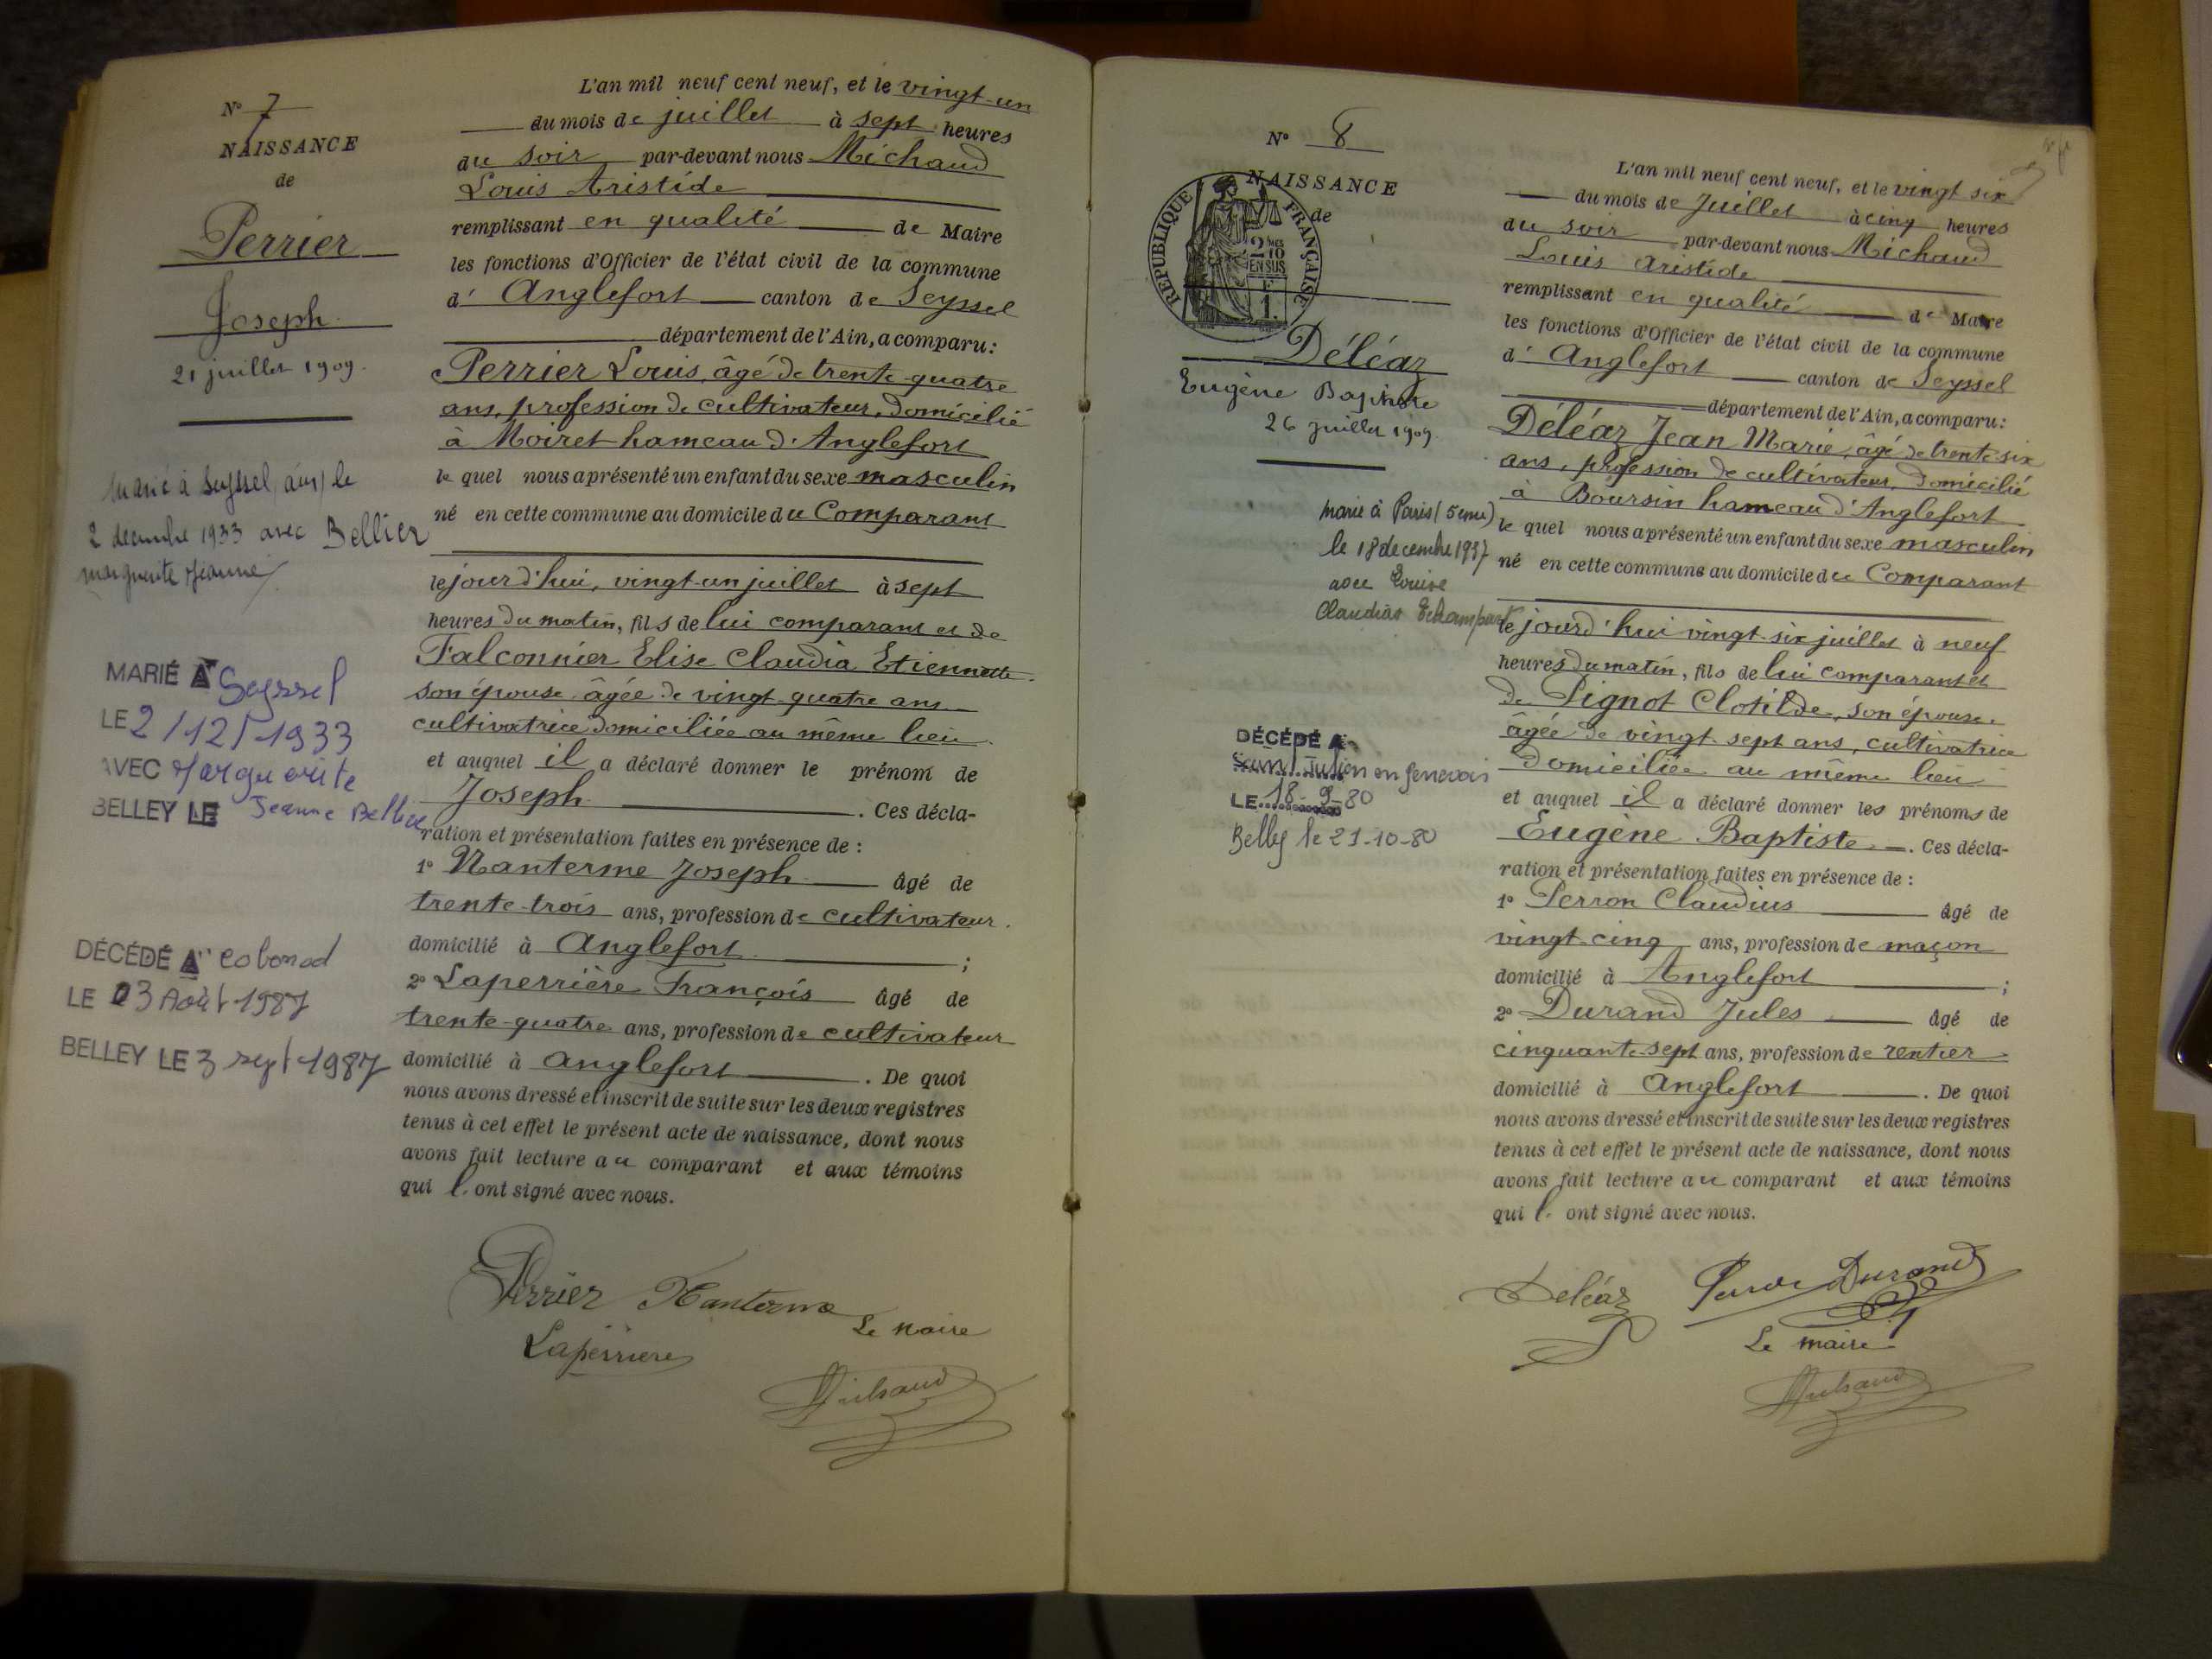 N° 7
NAISSANCE
de
Perrier
Joseph
21 juillet 1909.
Marié à Seyssel (ain) le
2 decembre 1933 avec Bellier
marguerite Jeanne
MARIÉ A Seyssel
LE 2/12/1933
AVEC Marguerite
BELLEY LE Jeanne Bellier
DÉCÉDÉ A Corbonod
LE 03 Août 1987
BELLEY LE 3 sept 1987
L'an mil neuf cent neuf, et le vingt-un
du mois de juillet à sept heures
du soir par-devant nous Michaud
Louis Aristide
remplissant en qualité de Maire
les fonctions d'Officier de l'état civil de la commune
d' Anglefort canton de Seyssel
département de l'Ain, a comparu:
Perrier Louis, âgé de trente-quatre
ans, profession de cultivateur, domicilié
à Moiret hameau d'Anglefort
le quel nous a présenté un enfant du sexe masculin
né en cette commune au domicile du Comparant
le jourd'hui, vingt-un juillet à sept
heures du matin, fils de lui comparant et de
Falconnier Elise Claudia Etiennette
son épouse âgée de vingt-quatre ans
cultivatrice domiciliée au même lieu
et auquel il a déclaré donner le prénom de
Joseph. Ces décla-
ration et présentation faites en présence de :
1° Nanterme Joseph âgé de
trente-trois ans, profession de cultivateur.
domicilié à Anglefort ;
2° Laperrière François âgé de
trente-quatre ans, profession de cultivateur
domicilié à Anglefort. De quoi
nous avons dressé et inscrit de suite sur les deux registres
tenus à cet effet le présent acte de naissance, dont nous
avons fait lecture au comparant et aux témoins
qui l' ont signé avec nous.
Perrier Nanterme
Laperriere Le Maire
Michaud
N° 8
NAISSANCE
de
REPUBLIQUE FRANÇAISE
2/10
EN SUS
1.
Déléaz
Eugène Baptiste
26 juillet 1909.
Marié à Paris (5eme)
le 18 decembre 1937
avec Louise
DÉCÉDÉ A
Saint Julien en genevois
LE 18-9-80
Belley le 21-10-80
L'an mil neuf cent neuf, et le vingt six
du mois de Juillet à cinq heures
du soir par-devant nous Michaud
Louis Aristide
remplissant en qualité de Maire
les fonctions d'Officier de l'état civil de la commune
d' Anglefort canton de Seyssel
département de l'Ain, a comparu:
Déléaz Jean Marie, âgé de trente-six
ans, profession de cultivateur, domicilié
à Boursin hameau d'Anglefort
le quel nous a présenté un enfant du sexe masculin
né en cette commune au domicile du Comparant
le jourd'hui vingt-six juillet à neuf
heures du matin, fils de lui comparant et
de Pignot Clotilde, son épouse
âgée de vingt-sept ans, cultivatrice
domiciliée au même lieu
et auquel il a déclaré donner les prénoms de
Eugène Baptiste. Ces décla-
ration et présentation faites en présence de :
1° Perron Claudius âgé de
vingt-cinq ans, profession de maçon
domicilié à Anglefort ;
2° Durand Jules âgé de
cinquante-sept ans, profession de rentier
domicilié à Anglefort. De quoi
nous avons dressé et inscrit de suite sur les deux registres
tenus à cet effet le présent acte de naissance, dont nous
avons fait lecture au comparant et aux témoins
qui l' ont signé avec nous.
Deléaz Perron Durand
Le maire
Michaud